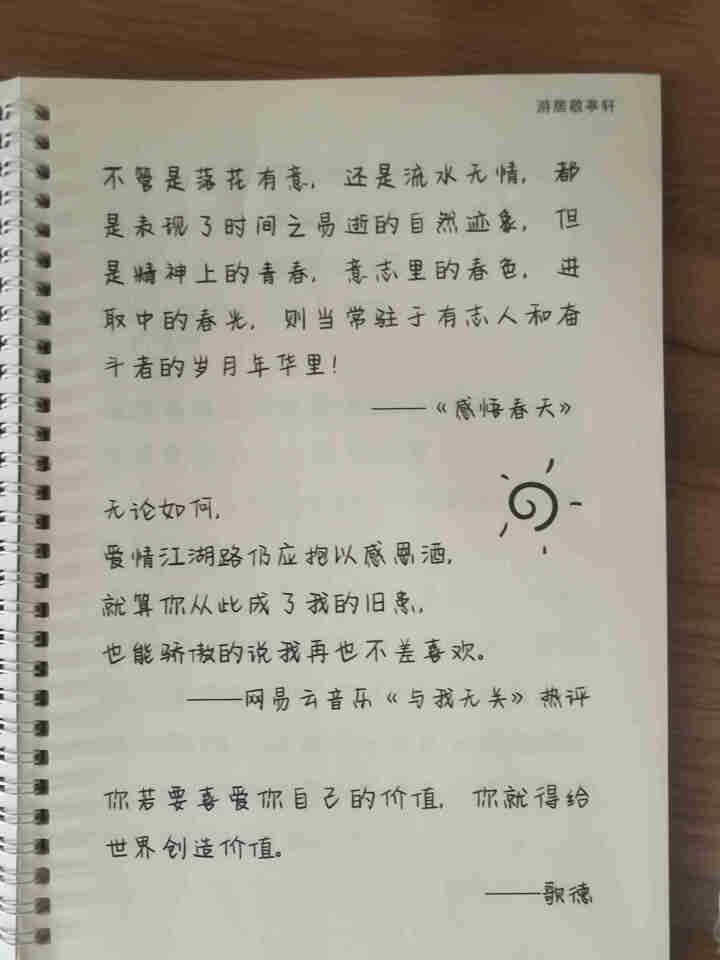 游居敬亭轩
不管是落花有意，还是流水无情，都
是表现了时间之易逝的自然迹象，但
是精神上的青春，意志里的春色，进
取中的春光，则当常驻于有志人和奋
斗者的岁月年华里！
——《感悟春天》
无论如何，
爱情江湖路仍应抱以感恩酒，
就算你从此成了我的旧患，
也能骄傲的说我再也不差喜欢。
——网易云音乐《与我无关》热评
你若要喜爱你自己的价值，你就得给
世界创造价值。
——歌德